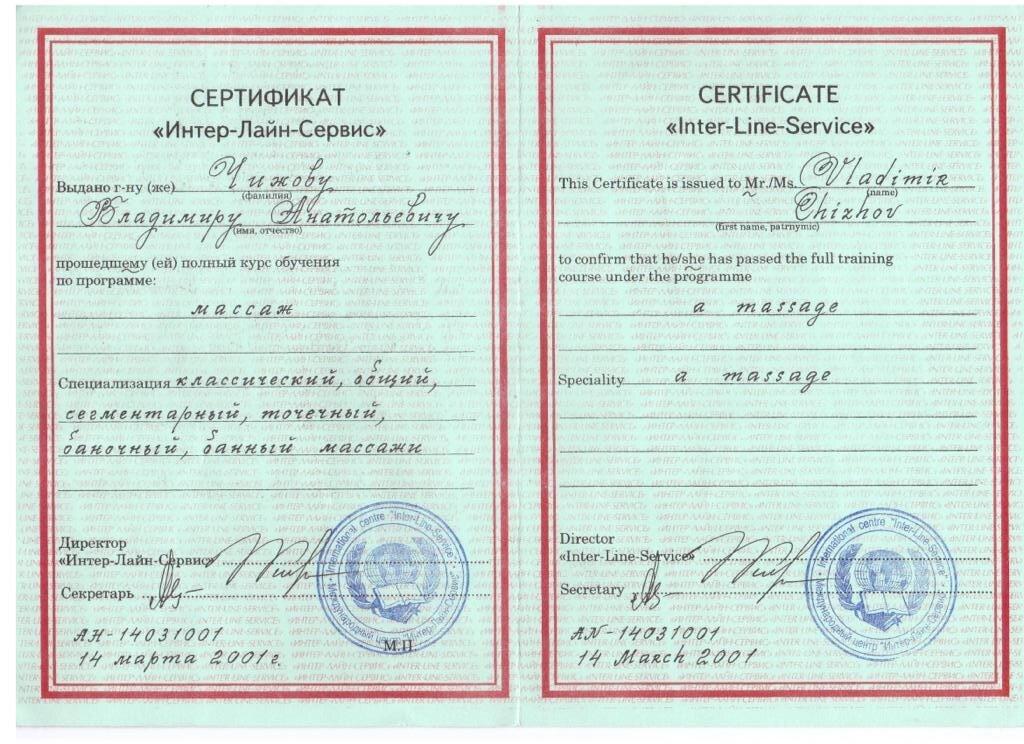 СЕРТИФИКАТ
«Интер-Лайн-Сервис»
Выдано г-ну (же) Чижову
(фамилия)
Владимиру Анатольевичу
(имя, отчество)
прошедшему (ей) полный курс обучения
по программе:
массаж
Специализация классический, общий,
сегментарный, точечный,
баночный, банный массажи
Директор
«Интер-Лайн-Сервис»
Секретарь
М.П.
АН-14031001
14 марта 2001 г.
CERTIFICATE
«Inter-Line-Service»
This Certificate is issued to Mr./Ms. Vladimir
(name)
Chizhov
(first name, patrnymic)
to confirm that he/she has passed the full training
course under the programme
a massage
Speciality a massage
Director
«Inter-Line-Service»
Secretary
International centre "Inter-Line-Service"
Международный центр "Интер-Лайн-Сервис"
AN-14031001
14 March 2001